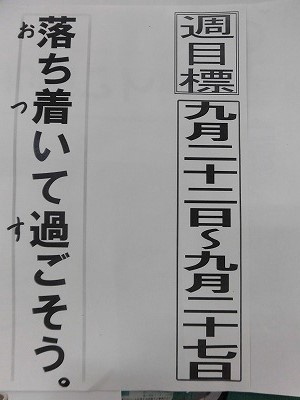 週目標
九月二十二日～九月二十七日
落ち着いて過ごそう。
おつす